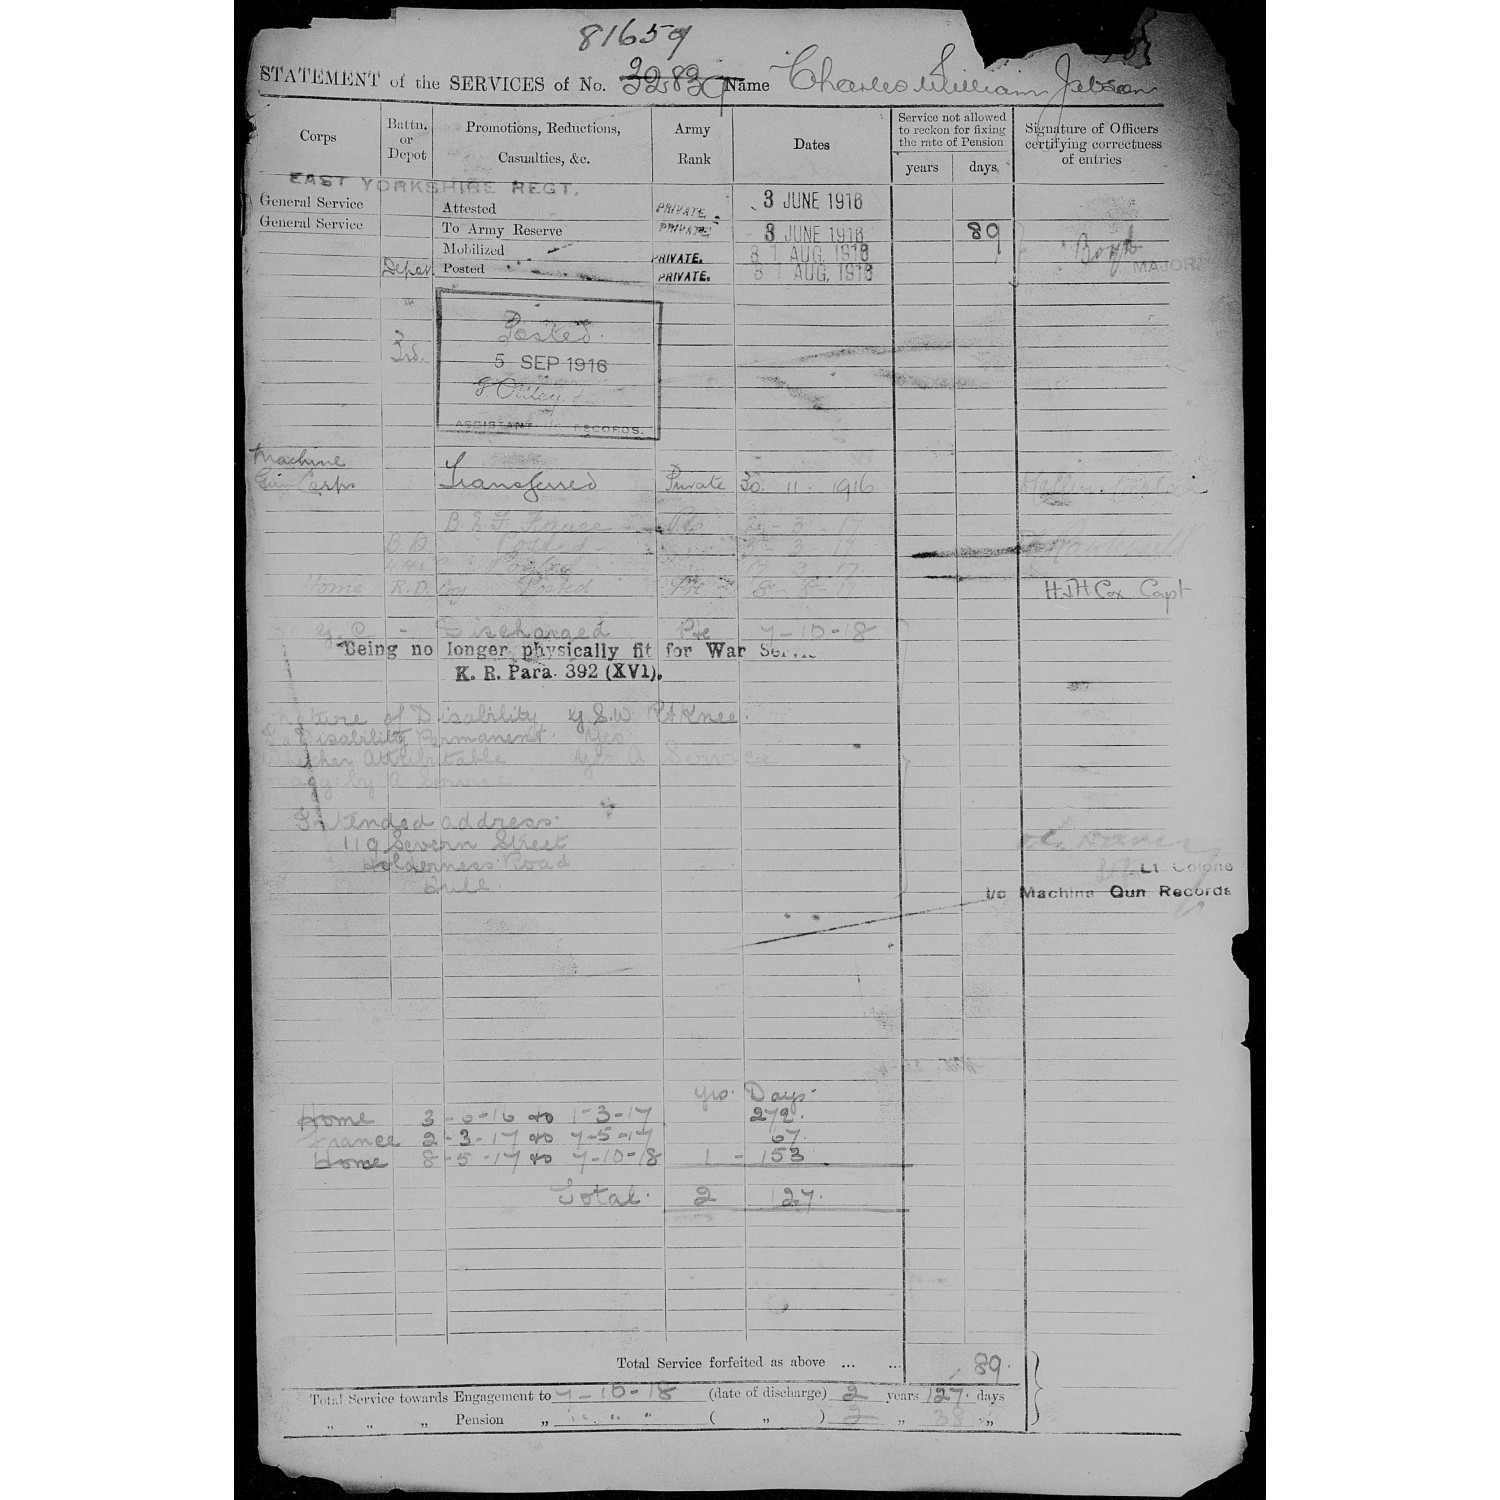 81659
STATEMENT of the SERVICES of No. 32839 Name Charles William Jebson
Corps
Battn. or Depot
Promotions, Reductions, Casualties, &c.
Army Rank
Dates
Service not allowed to reckon for fixing the rate of Pension
years days
Signature of Officers certifying correctness of entries
EAST YORKSHIRE REGT.
General Service Attested PRIVATE. 3 JUNE 1916
General Service To Army Reserve PRIVATE. 3 JUNE 1916 89
Mobilized PRIVATE. 31 AUG. 1916
Depot Posted PRIVATE. 31 AUG. 1916
MAJOR
3rd. Posted.
5 SEP 1916
ASSISTANT i/c RECORDS.
Machine
Gun Corps Transferred Private 30. 11. 1916
B E F France Pte 2 - 3 - 17
B.D. Posted 3 - 3 - 17
Posted
Home R.D. Coy Posted Pte 8 - 5 - 17 H J H Cox Capt
Discharged Pte 7-10-18
Being no longer physically fit for War Servic
K. R. Para. 392 (XVI).
Nature of Disability G.S.W Rt Knee.
Is Disability Permanent. Yes
Whether Attributable Yes A Service
agg by A Service
Intended address.
119 Severn Street
Holderness Road
Hull.
Lt Colone
i/c Machine Gun Records
yrs. Days.
Home 3-6-16 to 1-3-17 272.
France 2-3-17 to 7-5-17 67.
Home 8-5-17 to 7-10-18 1 - 153
Total. 2 127.
Total Service forfeited as above ... ... 89.
Total Service towards Engagement to 7-10-18 (date of discharge) 2 years 127. days
„ „ „ Pension „ „ „ „ ( „ ) 2 „ 38 „